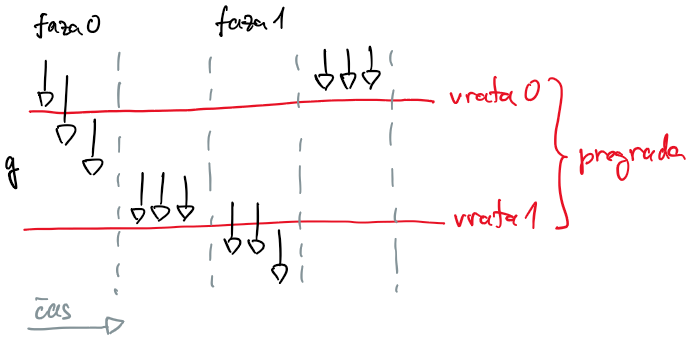 faza 0
faza 1
vrata 0
pregrada
g
vrata 1
čas